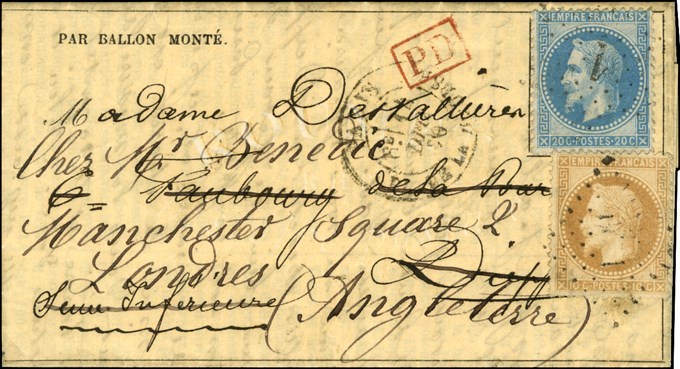 PAR BALLON MONTÉ.
PD
EMPIRE FRANÇAIS
20 C-POSTES-20 C
Madame Desvallières
Chez Mr Benedic
6 Faubourg de la Bar
Manchester Square 2
Londres
Seine Inférieure
(Angleterre)
EMPIRE FRANÇAIS
10 C-POSTES-10 C
1